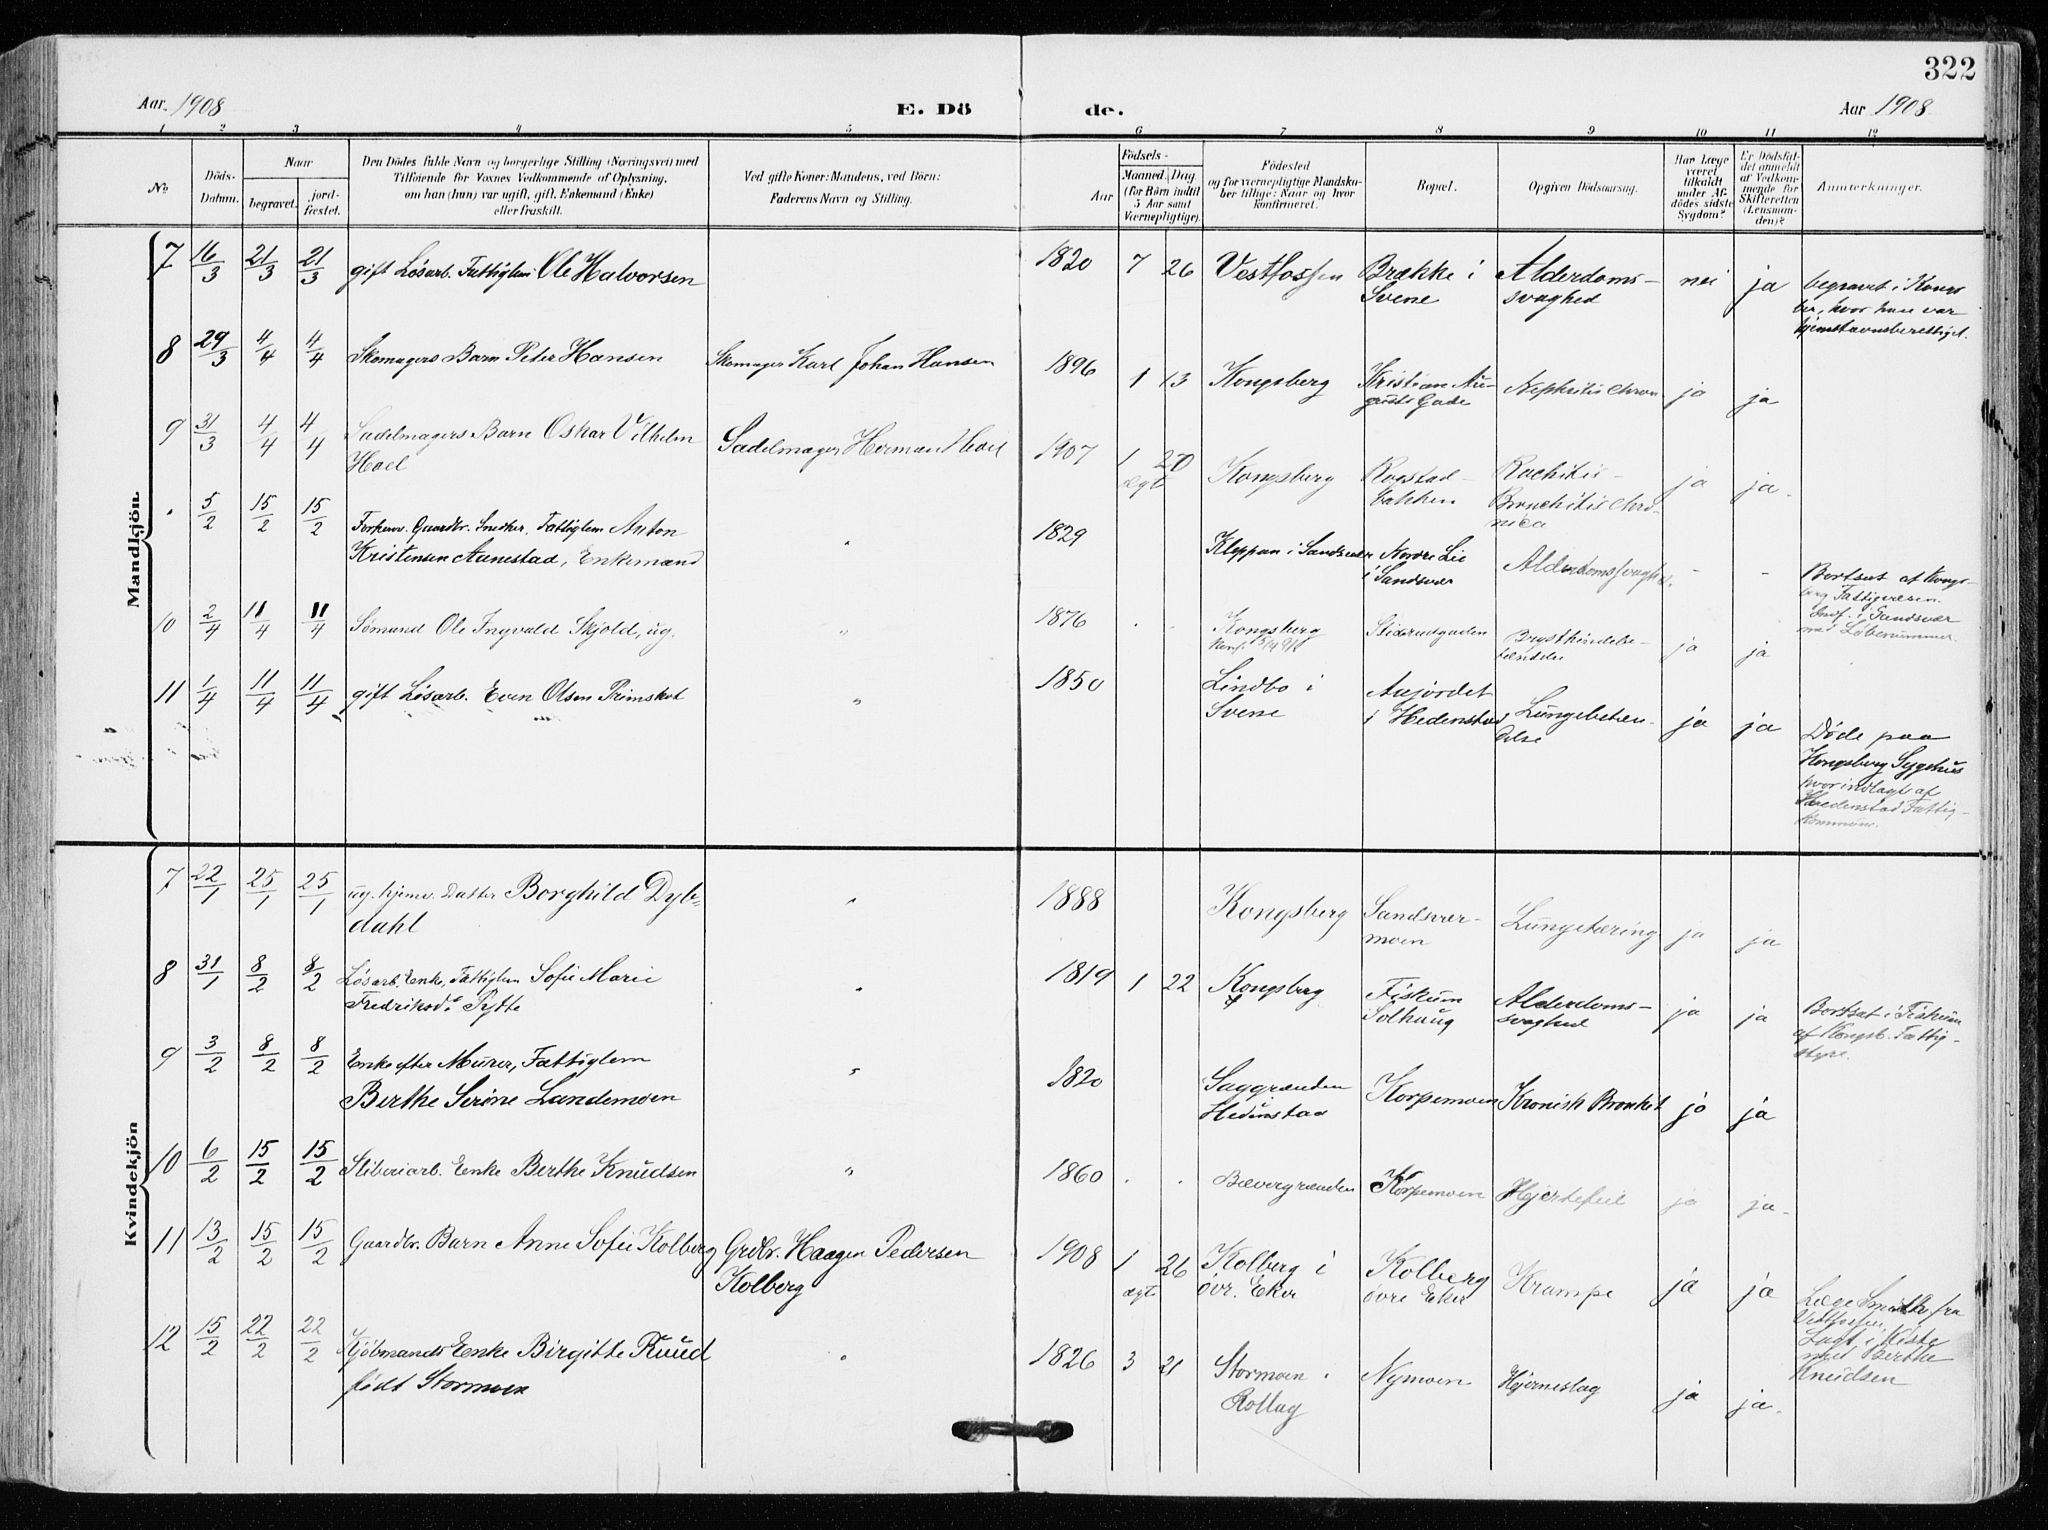 322
Aar. 1908
E. Dö
de.
Aar 1908
1 2 3 4 5 6 7 8 9 10 11 12
No
Döds-
Datum.
Naar
begravet.
jord-
fæstet.
Den Dödes fulde Navn og borgerlige Stilling (Næringsvei) med
Tilföiende for Voxnes Vedkommende af Oplysning,
om han (hun) var ugift, gift, Enkemand (Enke)
eller fraskilt.
Ved gifte Koner: Mandens, ved Börn:
Faderens Navn og Stilling.
Födsels-
Aar
Maaned. Dag
(for Börn indtil
5 Aar samt
Værnepligtige).
Födested
og for værnepligtige Mandskaber tillige: Naar og hvor
konfirmeret.
Bopæl.
Opgiven Dödsaarsag.
Har Læge
været
tilkaldt
under Af-
dödes sidste
Sygdom?
Er Dödsfal-
det anmeldt
af Vedkom-
mende for
Skifteretten
(Lensman-
den)?
Anmerkninger.
Mandkjön.
7 16/3 21/3 21/3 gift Løsarb. Fattiglem Ole Halvorsen 1820 7 26 Vestfossen Brække i
Svene Alderdoms-
svaghed nei ja begravet i Kongs
ber, hvor han var
hjemstavnsberettiget.
8 29/3 4/4 4/4 Skomagers Barn Peter Hansen Skomager Karl Johan Hansen 1896 1 13 Kongsberg Kristian Au-
gusts Gade Nephritis chron ja ja
9 31/3 4/4 4/4 Sadelmagers Barn Oskar Vilhelm
Hoel Sadelmager Herman Hoel 1907 1 20
ægt Kongsberg Rogstad-
bakken Rachitis-
Bronchitis chro-
nica ja ja.
" 5/2 15/2 15/2 Forhenv. Gaardbr. Snedker, Fattiglem Anton
Kristensen Aanestad, Enkemand " 1829 Kleppan i Sandsvær Nordre Lie
i Sandsvær Alderdomssvaghed. - - Bortsat af Kongs-
berg Fattigvæsen.
Indf. i Sandsvær
med Løbenummer.
10 2/4 11/4 11/4 Sømand Ole Ingvald Skjold, ug. " 1876 . . Kongsberg
Konf. Brysthindebe-
tændelse ja ja
11 1/4 11/4 11/4 gift Løsarb. Even Olsen Primskot " 1850 Lindbo i
Svene Aajordet
i Hedenstad Lungebetæn-
delse ja ja Døde paa
Kongsberg Sygehus
hvor indlagt af
Hedenstad Fattig-
kommune.
Kvindekjön
7 22/1 25/1 25/1 ug. hjemv. Datter Borghild Dybe-
dahl " 1888 Kongsberg Sandsvær-
moen Lungetæring ja ja
8 31/1 8/2 8/2 Løsarb. Enke, Fattiglem Sofie Marie
Fredriksd. Pytte " 1819 1 22 Kongsberg Fiskum
Solhaug Alderdoms-
svaghed ja ja Bortsat i Fiskum
af Kongsb. Fattig-
styre.
9 3/2 8/2 8/2 Enke efter Murer, Fattiglem
Berthe Serine Landemoen " 1820 Saggrænden
Hedenstad Korpemoen Kronisk Bronkit ja ja
10 6/2 15/2 15/2 Sliberiarb. Enke Berthe Knudsen " 1860 . . Bævergrænden Korpemoen Hjertefeil ja ja.
11 13/2 15/2 15/2 Gaardbr. Barn Anne Sofie Kolberg Grdbr. Haagen Pedersen
Kolberg 1908 1 26
ægt Kolberg i
øvr. Eker Kolberg
øvre Eker Krampe ja ja Læge Smith fra
Vestfossen.
Lagt i Kiste
med Berthe
Knudsen
12 15/2 22/2 22/2 Kjøbmands Enke Birgitte Ruud
født Stormoen " 1826 3 21 Stormoen i
Rollag Nymoen Hjerneslag ja ja.